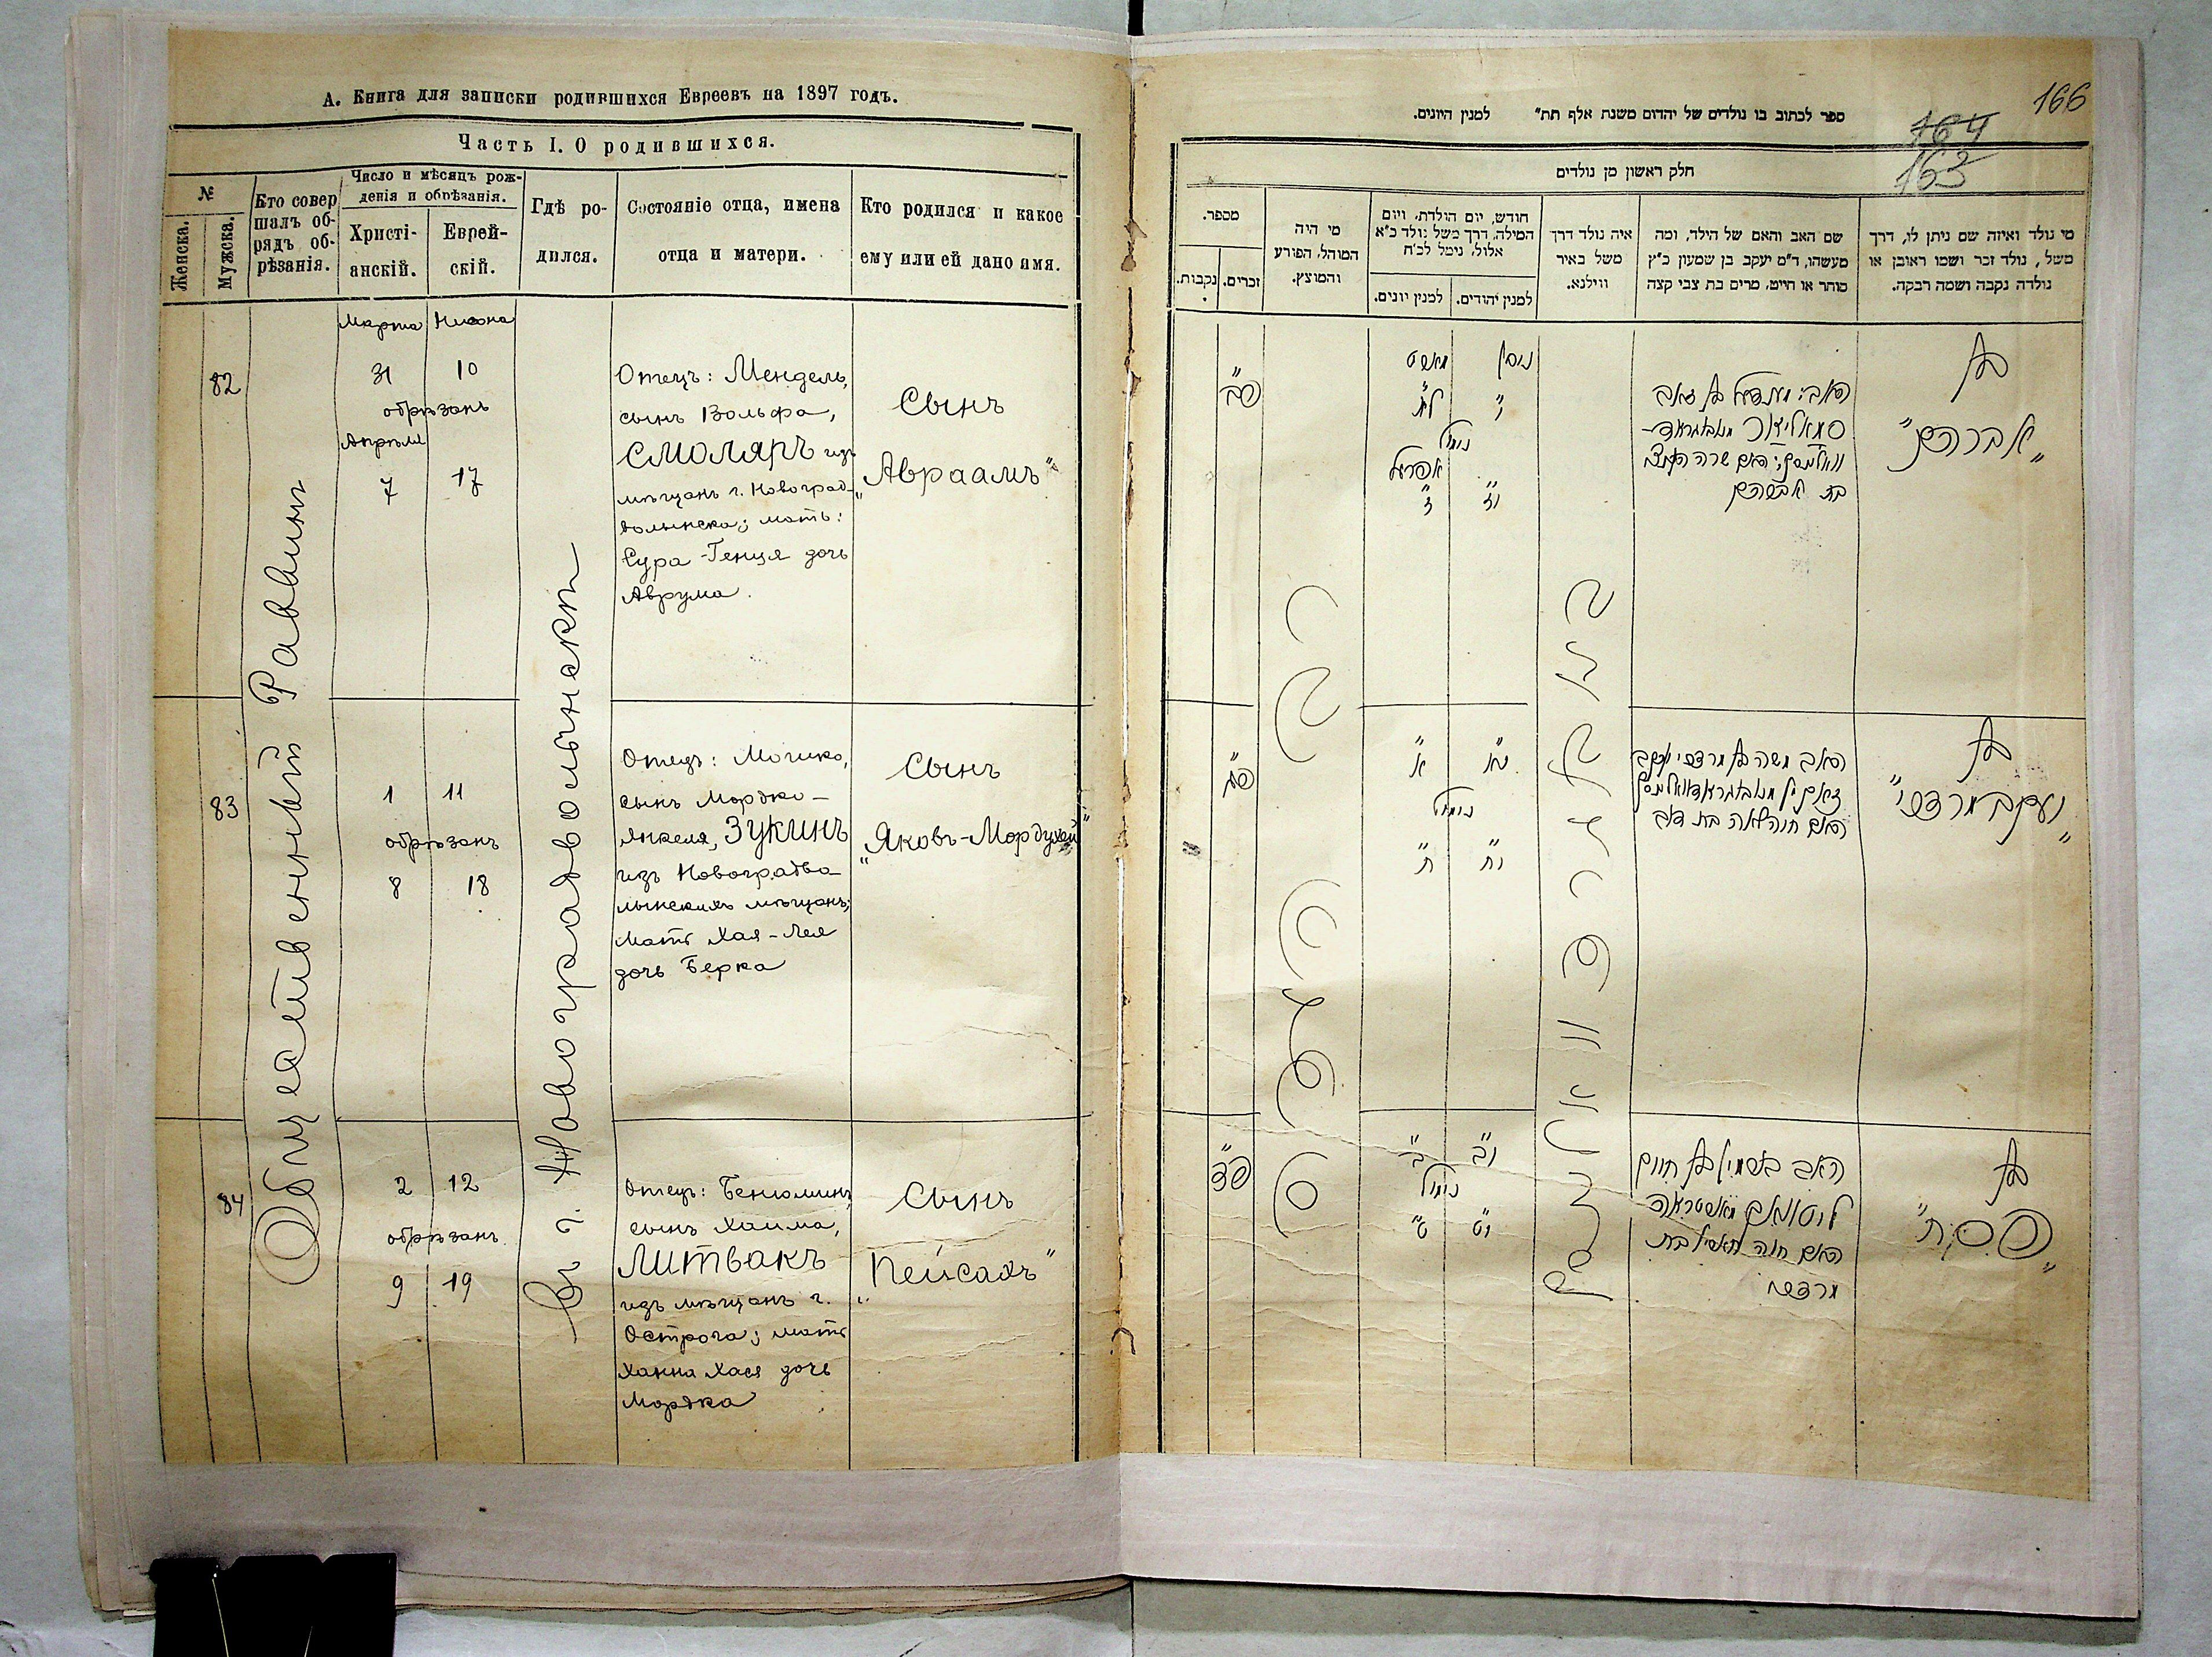 А. Книга для записки родившихся Евреевъ на 1897 годъ.
Часть I. О родившихся.
№
Женска.
Мужска.
Кто совер
шалъ об-
рядъ об-
рѣзанія.
Число и мѣсяцъ рож-
денія и обрѣзанія.
Христі-
анскій.
Еврей-
скій.
Гдѣ ро-
дился.
Состояніе отца, имена
отца и матери.
Кто родился и какое
ему или ей дано имя.
Общественный Раввинъ
Въ г. Новоградволынскѣ
82
Марта Нисона
31 10
обрѣзанъ
Апрѣля
7 17
Отецъ: Мендель,
сынъ Вольфа,
СМОЛЯРЪ изъ
мѣщанъ г. Новоград-
волынска; мать:
Сура-Генця дочь
Аврума.
Сынъ
„Авраамъ"
83
1 11
обрѣзанъ
8 18
Отецъ: Мошко,
сынъ Мордко-
Янкеля, ЗУКИНЪ
изъ Новоградво-
лынскихъ мѣщанъ;
Мать Хая-Лея
дочь Берка
Сынъ
„Яковъ-Мордухей"
84
2 12
обрѣзанъ
9 19
Отецъ: Беніоминъ,
сынъ Хаима,
ЛИТВАКЪ
изъ мѣщанъ г.
Острога; мать
Ханна Хася дочь
Мордка
Сынъ
„Пейсахъ"
166
164
163
ספר לכתוב בו נולדים של יהדום משנת אלף תת" למנין היונים.
חלק ראשון מן נולדים
מספר.
נקבות.
זכרים.
מי היה
המוהל, הפורע
והמוצץ.
חודש, יום הולדת, ויום
המילה, דרך משל נולד כ"א
אלול, נימל לכ"ח
למנין יונים.
למנין יהודים.
איה נולד דרך
משל באיר
ווילנא.
שם האב והאם של הילד, ומה
מעשהו, ד"מ יעקב בן שמעון כ"ץ
סוחר או חייט, מרים בת צבי קצה
מי נולד ואיזה שם ניתן לו, דרך
משל, נולד זכר ושמו ראובן או
נולדה נקבה ושמה רבקה.
פ"ב
ניסן מארט
י" ל"א
נימול
אפריל
י"ז ז"
האב: מענדיל בן זאב
סמאליאר
האם שרה
בת אברהם
בן
„אברהם"
פ"ג
י"א א"
נימול
י"ח ח"
האב משה בן מרדכי יעקב
האם חיה לאה בת דוב
בן
„יעקב מרדכי"
פ"ד
י"ב ב"
נימול
י"ט ט"
האב בנימין בן חיים
ליטוואק מאסטראה
האם חנה חאסיל בת
מרדכי
בן
„פסח"